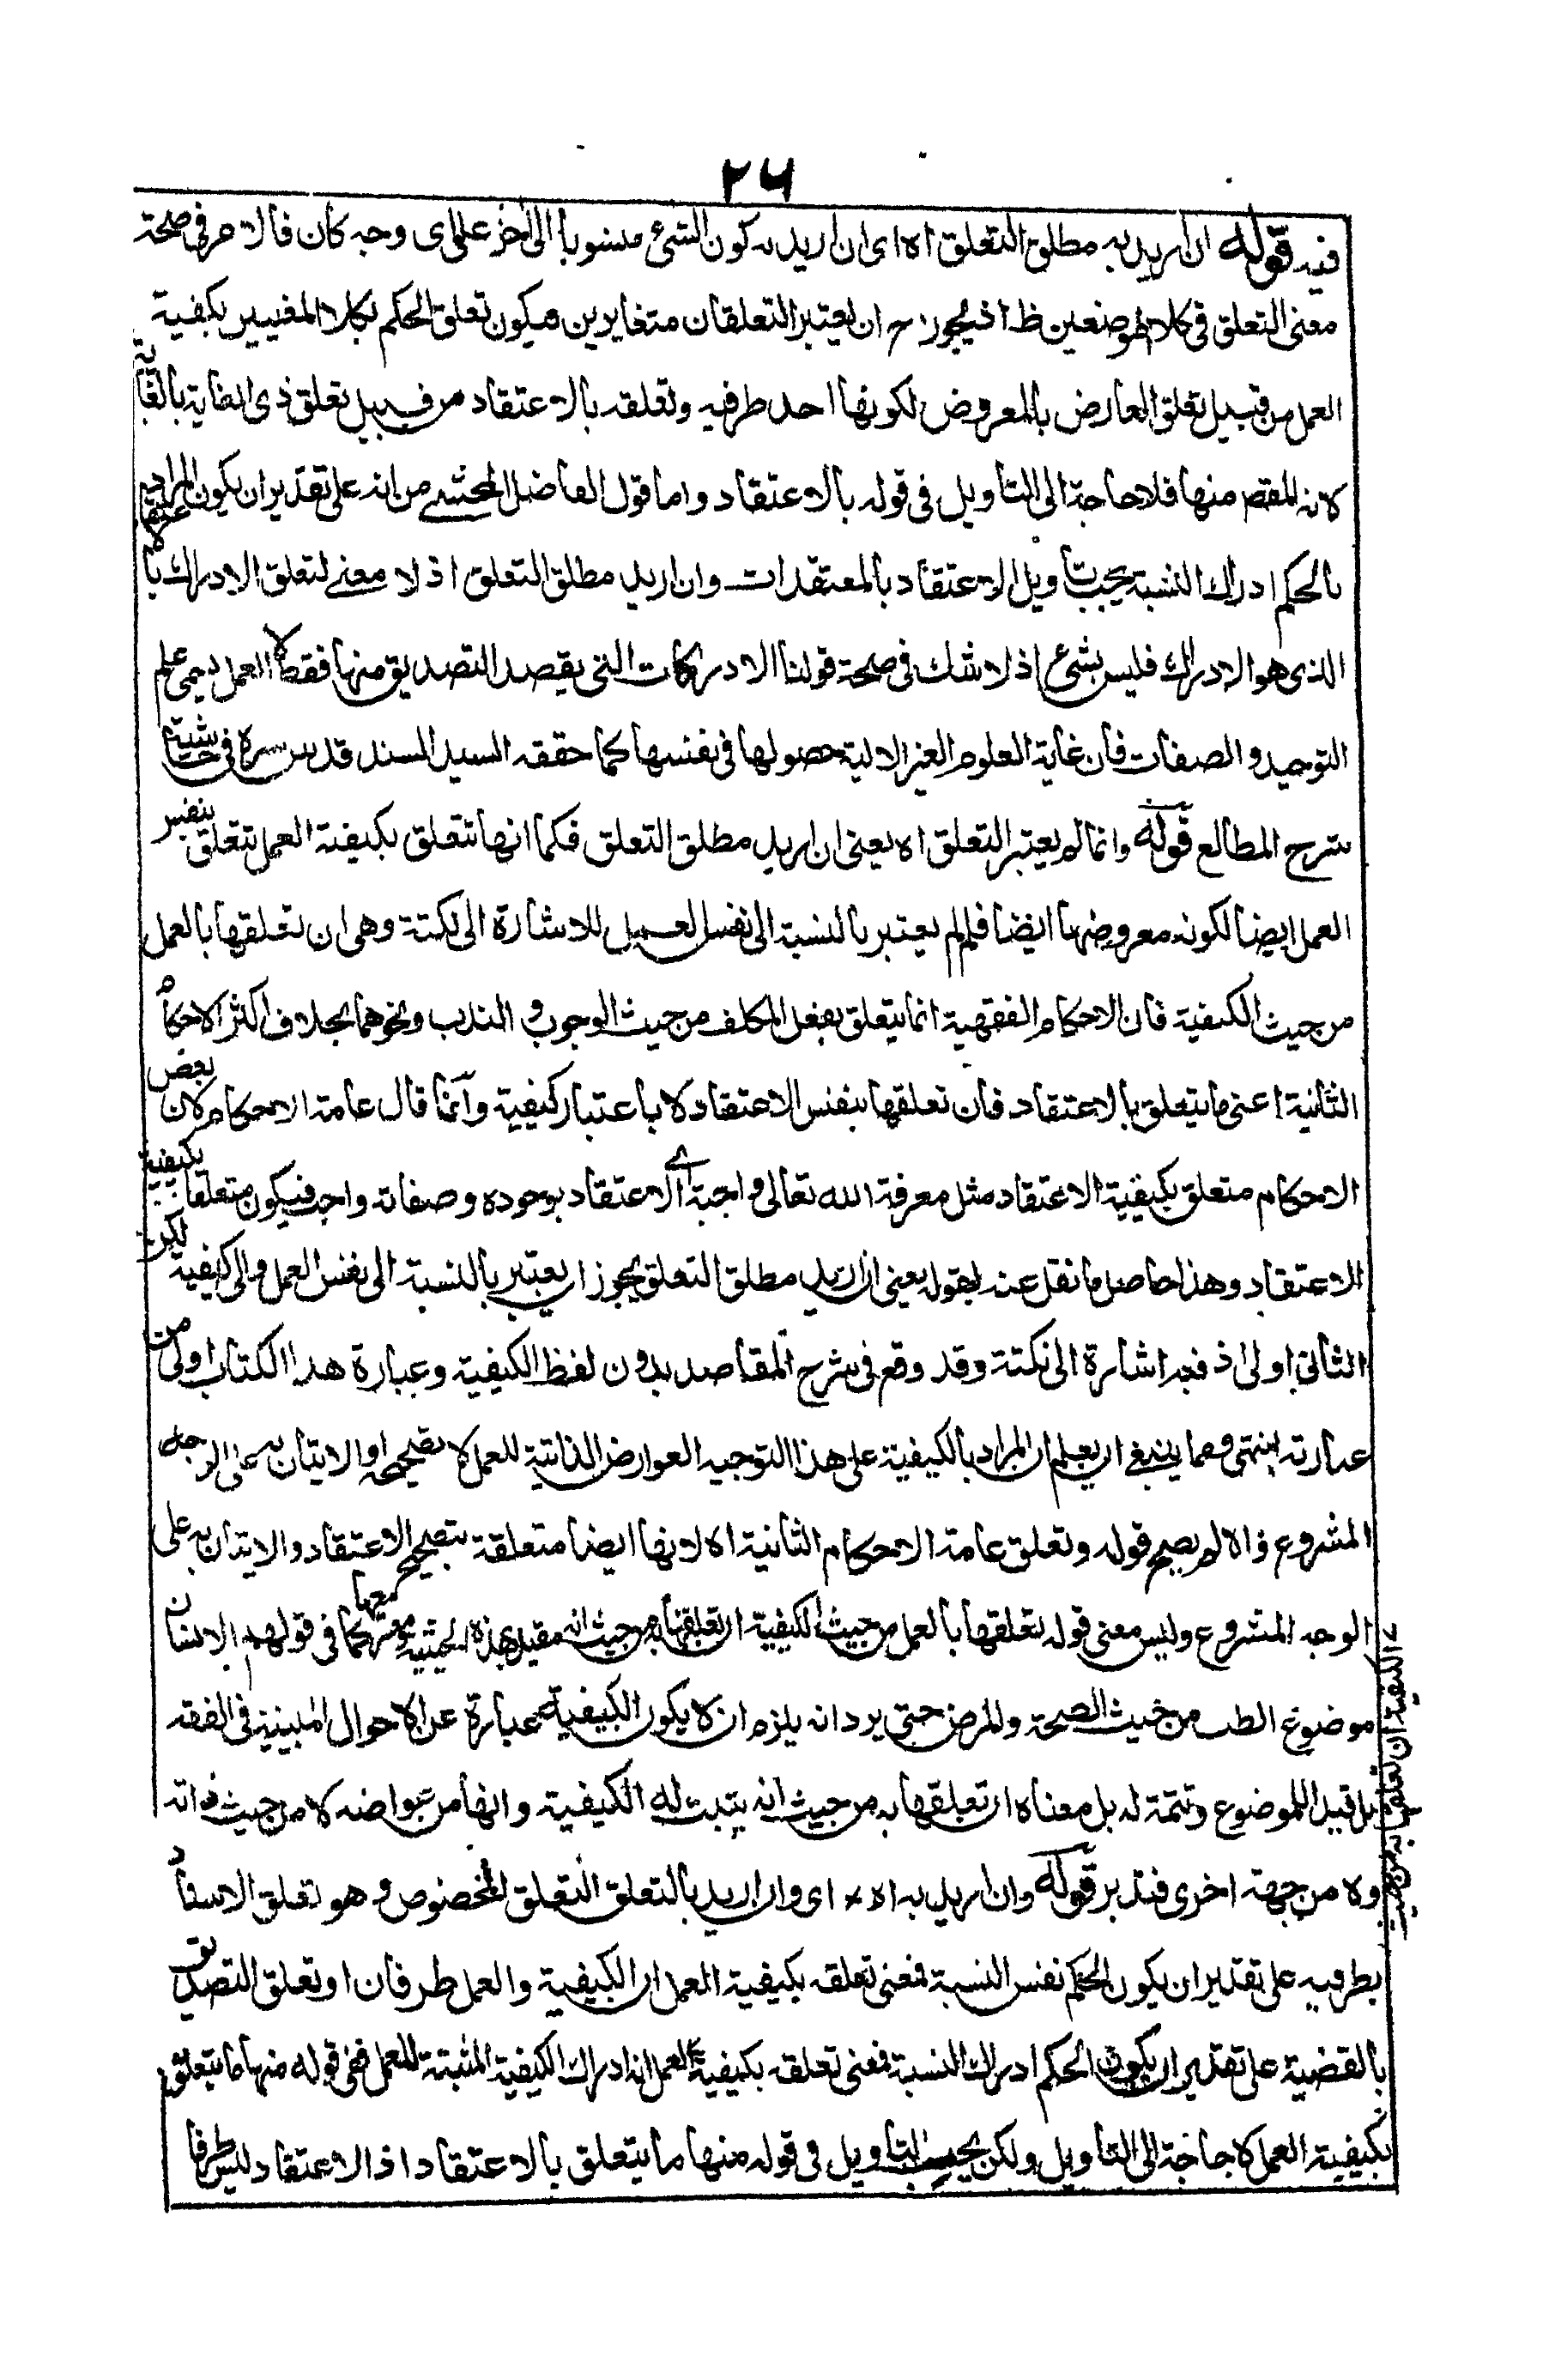 ٢٦
فيه قوله ان اريد به مطلق التعلق اه اى ان اريد به كون الشئ منسوبا الى الآخر على اى وجه كان فالامر فى صحة
معنى التعلق فى كلا الموضعين ظ اذ يجوز ح ان يعتبر التعلقان متغايرين فيكون تعلق الحكم بكلا المغيين بكيفية
العمل من قبيل تعلق العارض بالمعروض لكونها احد طرفيه وتعلقه بالاعتقاد من قبيل تعلق ذى الغاية بالغاية
لانه المقصم منها فلا حاجة الى التاويل فى قوله بالاعتقاد واما قول الفاضل المحشى من انه على تقدير ان يكون المراد
بالحكم ادراك النسبة يجب تاويل الاعتقاد بالمعتقدات وان اريد مطلق التعلق اذ لا معنى لتعلق الادراك بالاعتقاد
الذى هو الادراك فليس بشئ اذ لا شك فى صحة قولنا الادراكات التى يقصد التصديق منها فقط لا العمل يسمى علم
التوحيد والصفات فان غاية العلوم الغير الالية حصولها فى نفسها كما حققه السيد السند قدس سره فى حاشية
شرح المطالع قوله وانما لم يعتبر التعلق اه يعنى ان اريد مطلق التعلق فكما انها تتعلق بكيفية العمل تتعلق بنفس
العمل ايضا لكونه معروضها ايضا فلم لم يعتبر بالنسبة الى نفس العمل للاشارة الى نكتة وهى ان تعلقها بالعمل
من حيث الكيفية فان الاحكام الفقهية انما يتعلق بفعل المكلف من حيث الوجوب والندب ونحوهما بخلاف اكثر الاحكام
الثانية اعنى ما يتعلق بالاعتقاد فان تعلقها بنفس الاعتقاد لا باعتبار كيفية وانما قال عامة الاحكام لان بعض
الاحكام متعلق بكيفية الاعتقاد مثل معرفة الله تعالى واجبة اى الاعتقاد بوجوده وصفاته واجب فيكون متعلقا بكيفية
الاعتقاد وهذا حاصل ما نقل عنه بقوله يعنى ان اريد مطلق التعلق يجوز ان يعتبر بالنسبة الى نفس العمل والى كيفية لكن
الثانى اولى اذ فيه اشارة الى نكتة وقد وقع فى شرح المقاصد بدون لفظ الكيفية وعبارة هذا الكتاب اولى من
عبارته انتهى ومما ينبغى ان يعلم ان المراد بالكيفية على هذا التوجيه العوارض الذاتية للعمل لا تصحيحه والاتيان به على الوجه
المشروع والا لم يصح قوله وتعلق عامة الاحكام الثانية اه لانها ايضا متعلقة بتصحيح الاعتقاد والاتيان به على
الوجه المشروع وليس معنى قوله تعلقها بالعمل من حيث الكيفية ان تعلقها به من حيث انه مقيد بهذه الحيثية كما فى قولهم الانسان
موضوع الطب من حيث الصحة والمرض حتى يرد انه يلزم ان لا يكون الكيفية عبارة عن الاحوال المبينة فى الفقه
بل قيد اللموضوع وتتمة له بل معناه ان تعلقها به من حيث انه يثبت له الكيفية وانها من عوارضه لا من حيث ذاته
وه من جهة اخرى فتدبر قوله وان اريد به اه اى وان اريد بالتعلق التعلق المخصوص وهو تعلق الاسناد
بطرفيه على تقدير ان يكون الحكم نفس النسبة فمعنى تعلقه بكيفية العمل ان الكيفية والعمل طرفان او تعلق التصديق
بالقضية على تقدير ان يكون الحكم ادراك النسبة فمعنى تعلقه بكيفية العمل انه ادراك الكيفية المثبتة للعمل ففى قوله منها ما يتعلق
بكيفية العمل لا حاجة الى التاويل ولكن يجب التاويل فى قوله منها ما يتعلق بالاعتقاد اذ الاعتقاد ليس طرفا